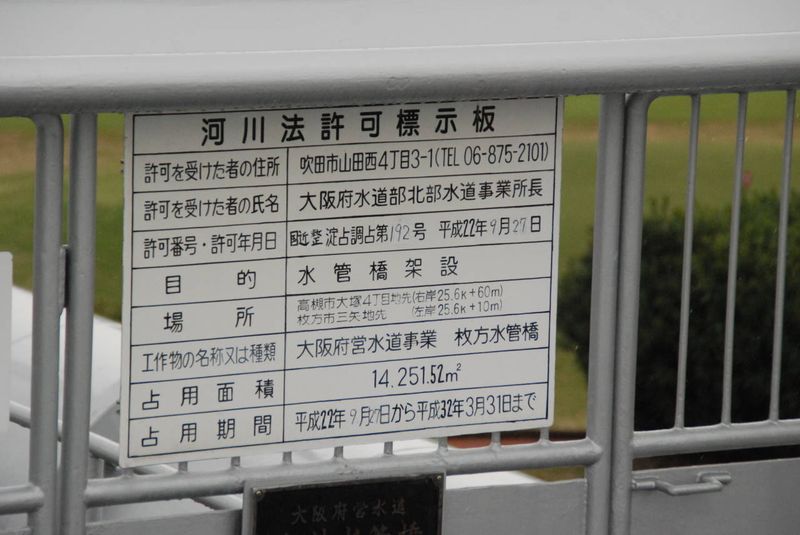 河川法許可標示板
許可を受けた者の住所 吹田市山田西4丁目3-1(TEL 06-875-2101)
許可を受けた者の氏名 大阪府水道部北部水道事業所長
許可番号・許可年月日 国近整淀占調占第192号 平成22年9月27日
目的 水管橋架設
場所 高槻市大塚4丁目地先(右岸25.6K+60m)
枚方市三矢地先 (左岸25.6K+10m)
工作物の名称又は種類 大阪府営水道事業 枚方水管橋
占用面積 14,251.52m²
占用期間 平成22年9月27日から平成32年3月31日まで
大阪府営水道